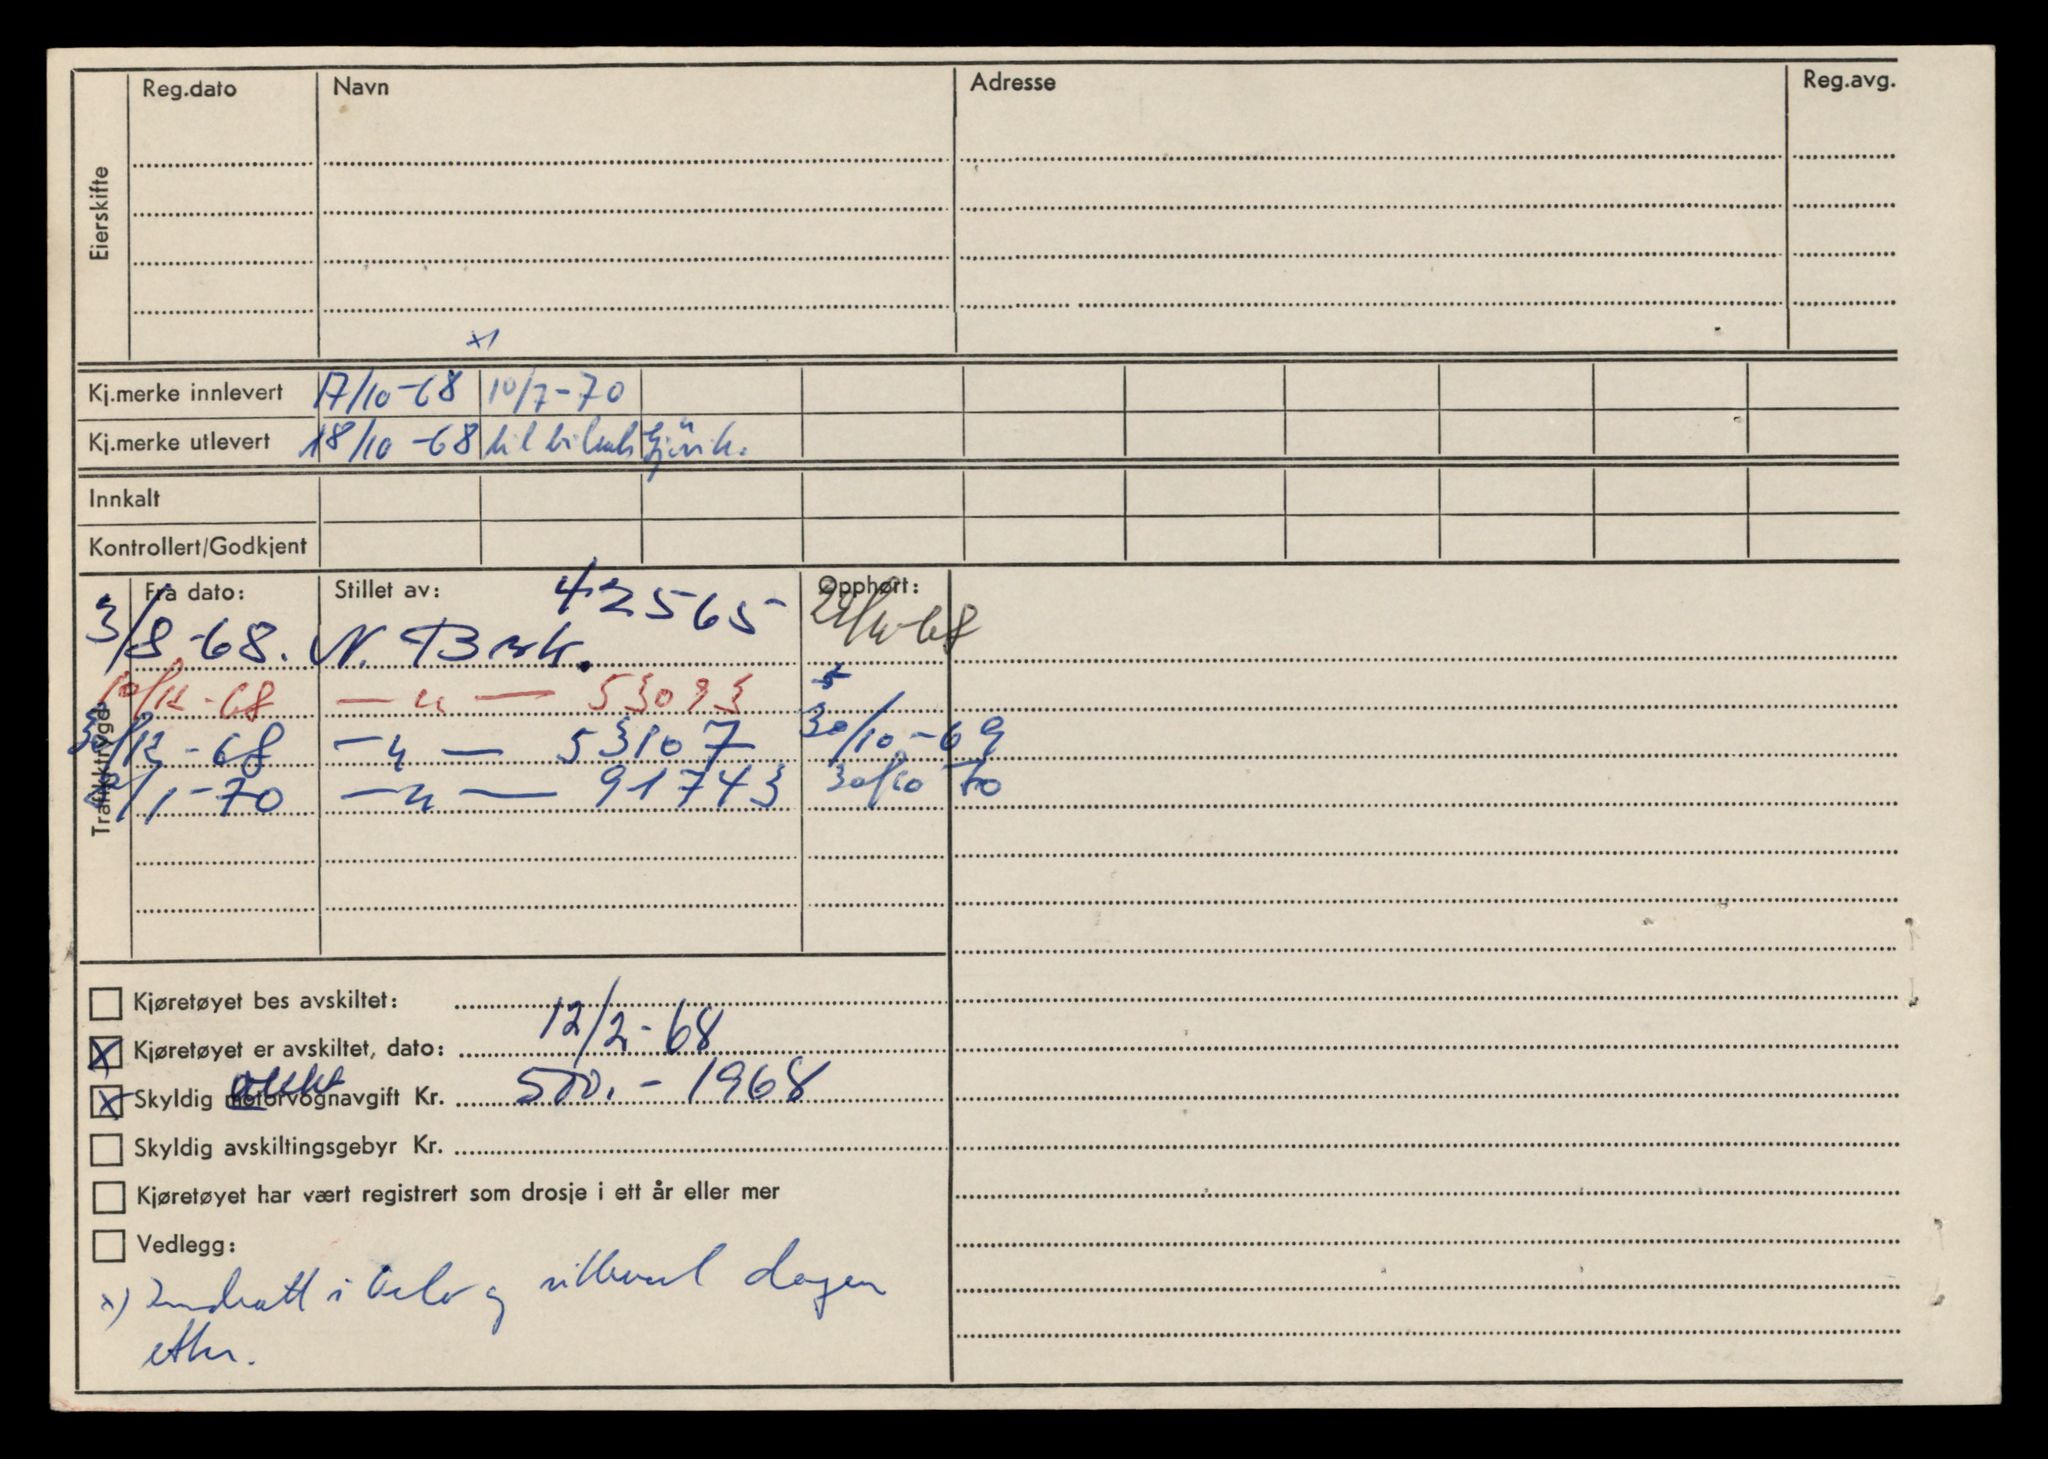 Reg.dato Navn Adresse Reg.avg.
Eierskifte
x)
Kj.merke innlevert 17/10-68 10/7-70
Kj.merke utlevert 18/10-68 til Gjøvik.
Innkalt
Kontrollert/Godkjent
Trafikktrygd
Fra dato: Stillet av: Opphørt:
3/8-68. N. Brk. 42565
10/12-68 —"— 53093
30/12-68 —"— 53107 30/10-69
2/1-70 —"— 91743 30/10 70
Kjøretøyet bes avskiltet:
X Kjøretøyet er avskiltet, dato: 12/2-68
X Skyldig motorvognavgift Kr. 500.- 1968
Skyldig avskiltingsgebyr Kr.
Kjøretøyet har vært registrert som drosje i ett år eller mer
Vedlegg:
x) Inndratt i Oslo og utlevert dagen
etter.